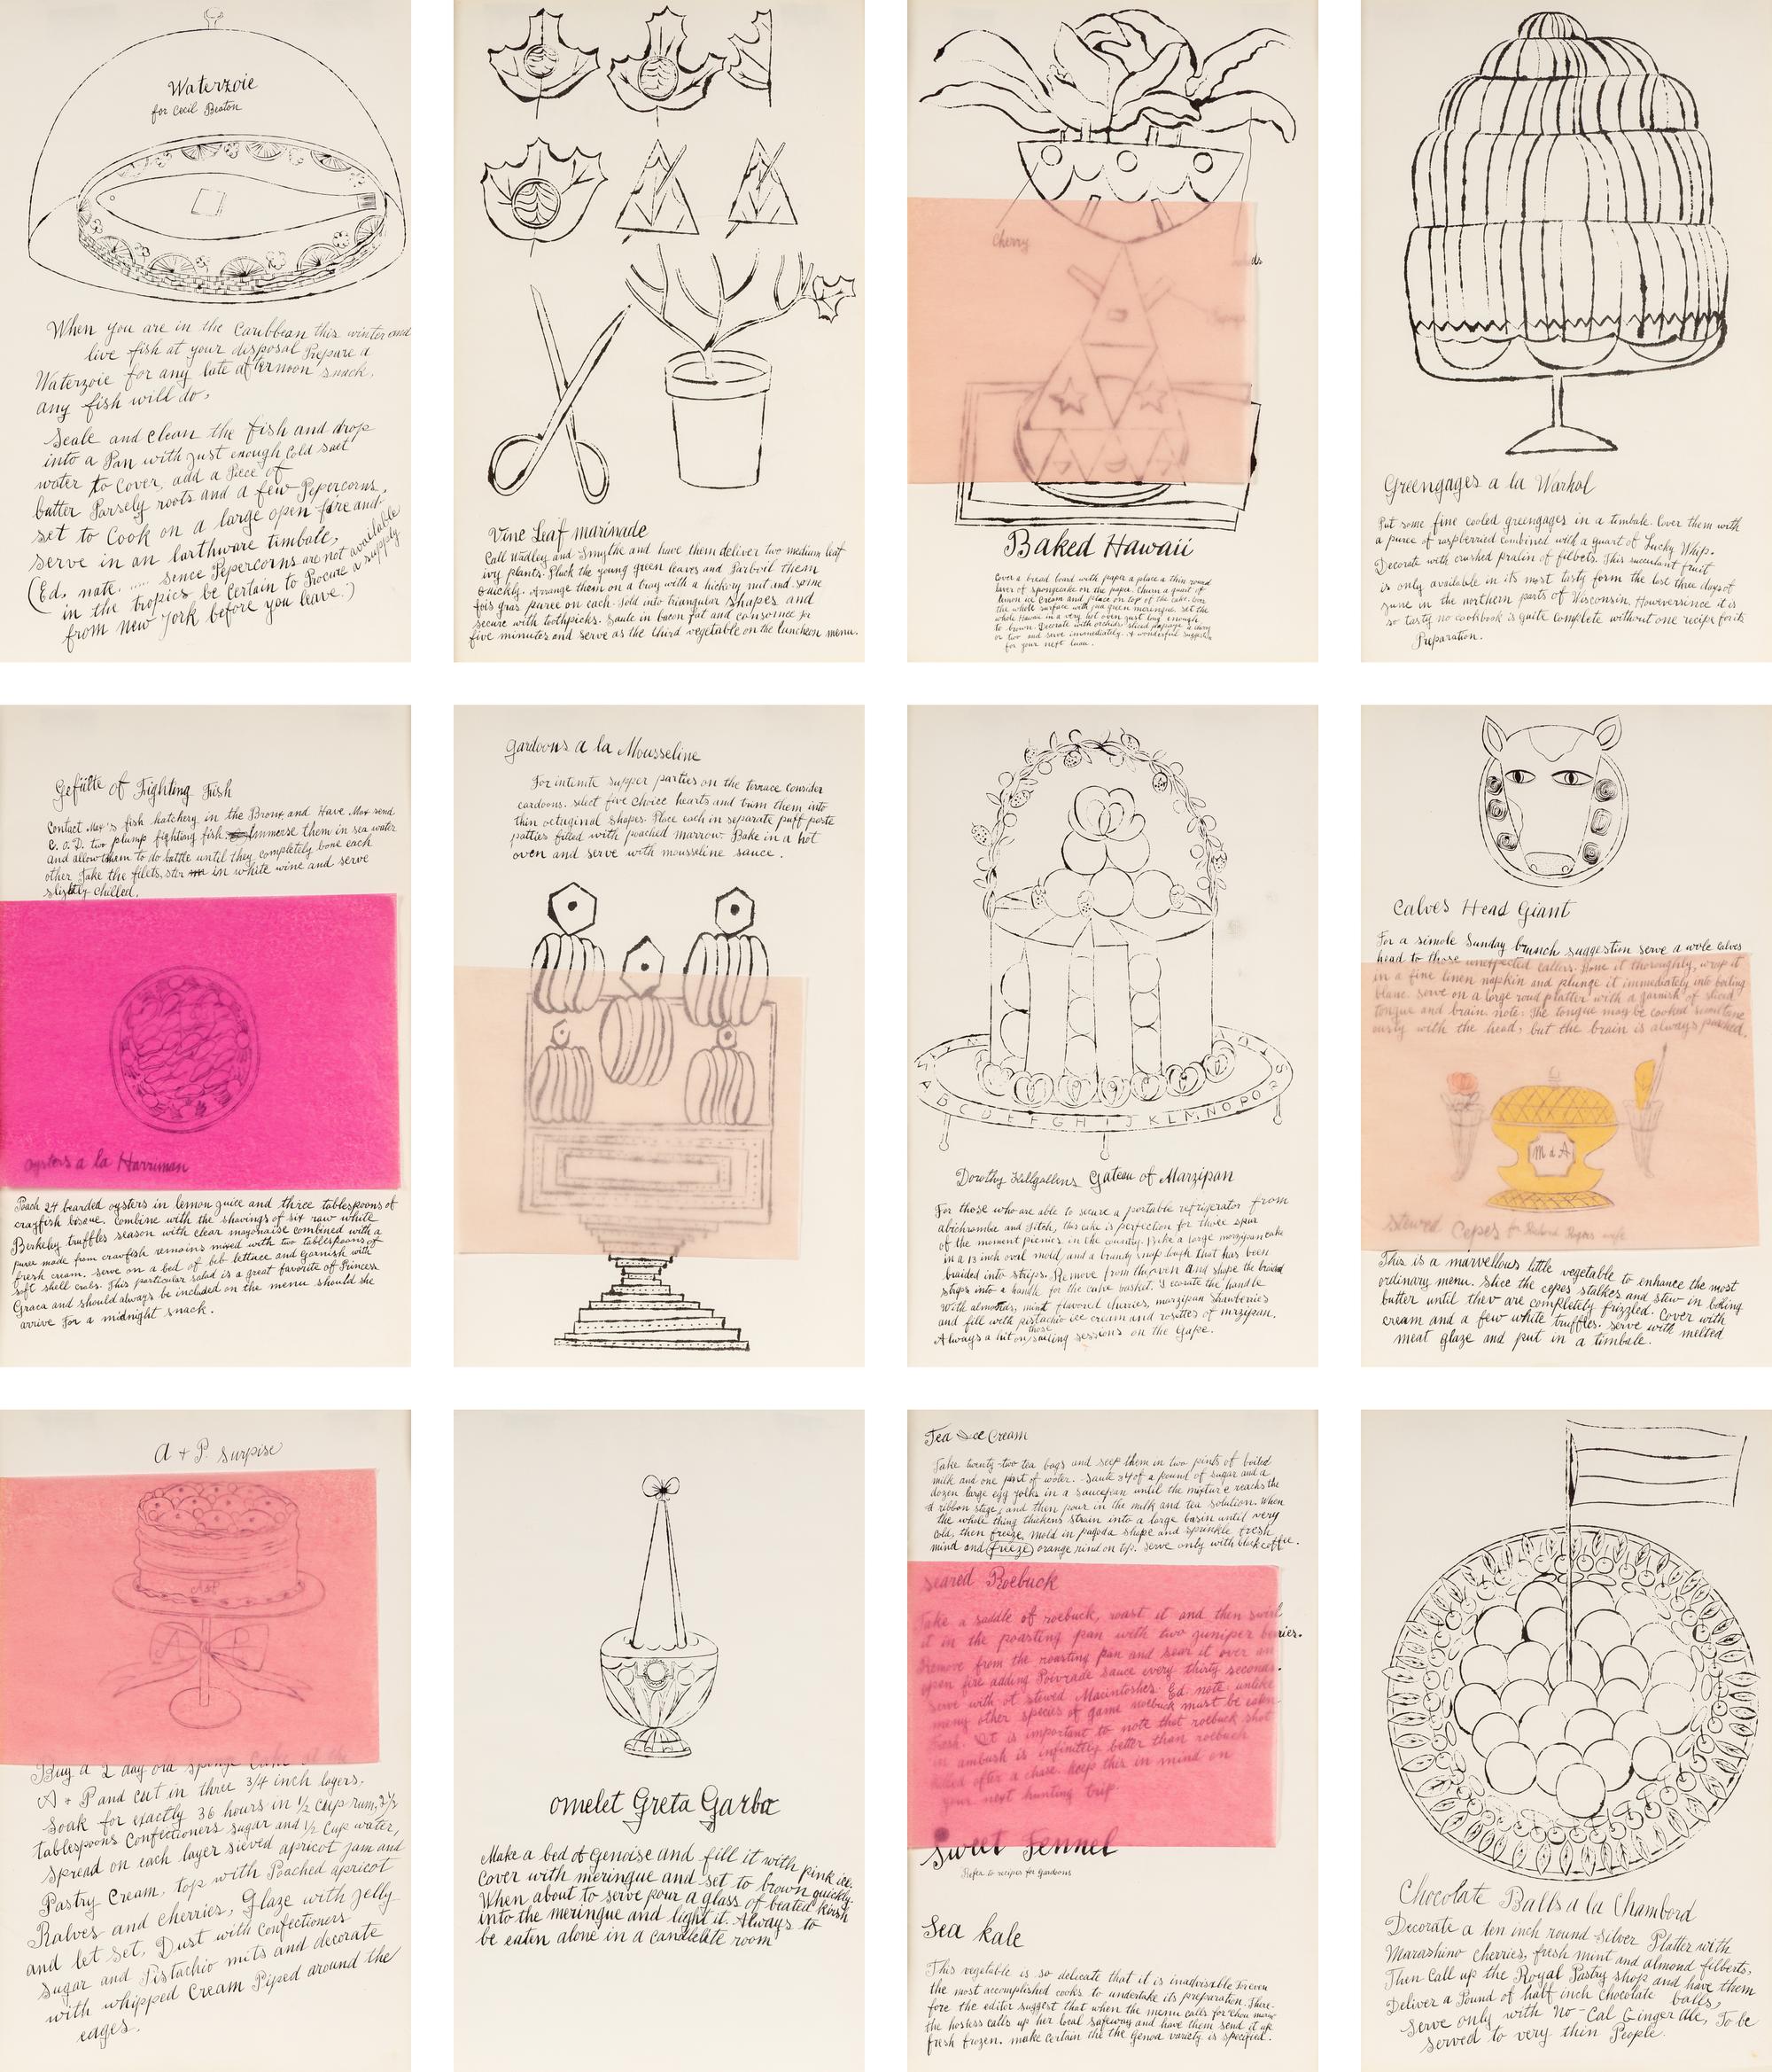 Waterzoie
for Cecil Beaton
When you are in the Caribbean this winter and
live fish at your disposal Prepare a
Waterzoie for any late afternoon snack.
any fish will do.
Scale and clean the fish and drop
into a Pan with just enough Cold salt
water to Cover, add a Piece of
butter Parsely roots and a few Pepercorns.
set to Cook on a large open fire and
serve in an earthware timbale.
(Ed. note ..... sence Pepercorns are not available
in the tropics be Certain to Procure a supply
from New York before you leave.)
Vine Leaf marinade
Call Wadley and Smythe and have them deliver two medium leaf
ivy plants. Pluck the young green leaves and Parboil them
quickly. Arrange them on a tray with a hickory nut and some
fois gras puree on each. Fold into triangular shapes and
secure with toothpicks. Saute in bacon fat and consomee for
five minutes and serve as the third vegetable on the luncheon menu.
Cherry
Baked Hawaii
Cover a bread board with paper a place a thin round
layer of spongecake on the paper. Churn a quart of
lemon ice Cream and place on top of the cake. Cover
the whole surface with pea green meringue. set the
whole Hawaii in a very hot oven just long enough
to brown. Decorate with orchids sliced papaya a cherry
or two and serve immediately. A wonderful suggestion
for your next luau.
Greengages a la Warhol
Put some fine cooled greengages in a timbale. Cover them with
a puree of raspberried combined with a quart of Lucky Whip.
Decorate with crushed pralin of filberts. This succulant fruit
is only available in its most tasty form the last three days of
June in the northern parts of Wisconsin. However since it is
so tasty no cookbook is quite complete without one recipe for its
Preparation.
Gefülte of Fighting Fish
Contact Max's fish hatchery in the Bronx and Have Max send
C.O.D. two plump fighting fish. Immerse them in sea water
and allow them to do battle until they completely bone each
other Take the filets, stew in white wine and serve
slightly chilled.
oysters a la Harriman
Poach 24 bearded oysters in lemon juice and three tablespoons of
crayfish bisque. Combine with the shavings of six raw white
Berkeley truffles season with clear mayonaise combined with a
puree made from crawfish remains mixed with two tablespoons of
fresh cream. serve on a bed of beb lettuce and garnish with
soft shell crabs. This particular salad is a great favorite of Princess
Graca and should always be included on the menu should she
arrive for a midnight snack.
Gardoons a la Mousseline
For intemite supper parties on the terrace consider
cardoons. select five choice hearts and trim them into
thin octaginal shapes. Place each in separate puff paste
patties filled with poached marrow. Bake in a hot
oven and serve with mousseline sauce.
A B C D E F G H I J K L M N O P Q R S
Dorothy Killgallens Gateau of Marzipan
For those who are able to secure a portable refrigerator from
abichrombie and Fitch, this cake is perfection for those spur
of the moment picnics in the country. Bake a large marzipan cake
in a 13 inch oval mold and a brandy snap lough that has been
braided into strips. Remove from the oven and shape the braided
strips into a handle for the cake basket. Decorate the handle
with almonds, mint flavored cherries, marzipan strawberries
and fill with pistachio ice cream and rosettes of marzipan.
Always a hit on those sailing sessions on the Cape.
Calves Head Giant
For a simole Sunday brunch suggestion serve a wole Calves
head to those unexpected callers. Bone it thoroughly, wrap it
in a fine linen napkin and plunge it immediately into boiling
blanc. serve on a large roud platter with a garnish of sliced
tongue and brain. note: The tongue may be cooked simultane
ously with the head, but the brain is always poached.
M d A
stewed Cepes for
This is a marvellous little vegetable to enhance the most
ordinary menu. slice the cepes stalkes and stew in boiling
butter until they are completely frizzled. Cover with
cream and a few white truffles. serve with melted
meat glaze and put in a timbale.
A + P. surpise
A + P
A P
Buy a 2 day old sponge Cake at the
A + P and cut in three 3/4 inch layers.
Soak for exactly 36 hours in 1/2 Cup rum,
tablespoons Confectioners sugar and 1/2 Cup water,
spread on each layer sieved apricot jam and
Pastry Cream, top with Poached apricot
Halves and cherries, Glaze with jelly
and let set, Dust with Confectioners
sugar and Pistachio nuts and decorate
with whipped Cream Piped around the
edges.
omelet Greta Garbo
Make a bed of Genoise and fill it with pink ice.
Cover with meringue and set to brown quickly.
When about to serve pour a glass of heated kirsh
into the meringue and light it. Always to
be eaten alone in a candlelite room
Tea Ice Cream
Take twenty-two tea bags and seep them in two pints of boiled
milk and one pint of water. Saute 3/4 of a pound of sugar and a
dozen large egg yolks in a saucepan until the mixture reaches the
ribbon stage, and then pour in the milk and tea solution. When
the whole thing thickens strain into a large basin until very
cold, then freeze. mold in pagoda shape and sprinkle fresh
mind and (freeze) orange rind on top. serve only with black coffee.
seared Roebuck
Take a saddle of roebuck, roast it and then swirl
it in the roasting pan with two juniper berries.
Remove from the roasting pan and sear it over an
open fire adding Poivrade sauce every thirty seconds.
serve with ot stewed Macintoshes. Ed. note unlike
many other species of game roebuck must be eaten
fresh. It is important to note that roebuck shot
in ambush is infinitely better than roebuck
killed after a chase. keep this in mind on
your next hunting trip.
Sweet Fennel
Refer to recipes for Gardoons
Sea kale
This vegetable is so delicate that it is inadvisable for even
the most accomplished cooks to undertake its preparation. There-
fore the editor suggest that when the menu calls for
the hostess calls up her local safeway and have them send it up
fresh frozen. make certain the the Genoa variety is specified.
Chocolate Balls a la Chambord
Decorate a ten inch round Silver Platter with
Marashino cherries, fresh mint and almond filberts,
Then Call up the Royal Pastry shop and have them
Deliver a Pound of half inch Chocolate balls,
Serve only with No-Cal Ginger Ale, To be
served to very thin People.